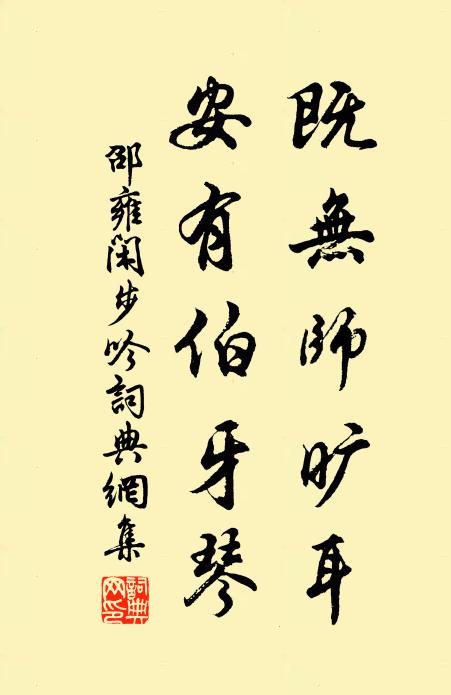 既無師旷耳
安有伯牙琴
邵雍閑步吟詞典網集
詞典網印